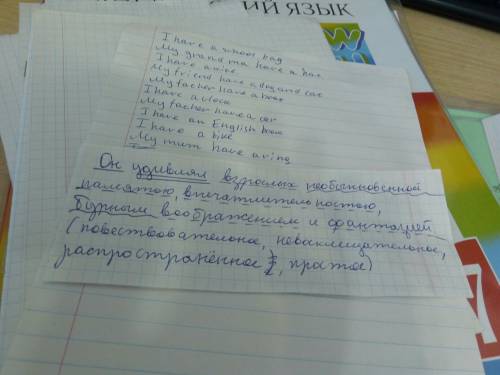 ИЙ ЯЗЫК
I have a school bag
My grandma have a hat
I have a
My friend have a dog and cat
My father have a book
I have a clock
My father have a car
I have an English book
I have a bike
My mum have a ring
Он удивлял взрослых необыкновенной
памятью, впечатлительностью,
бурным воображением и фантазией
(повествовательное, невосклицательное,
распространённое, простое)